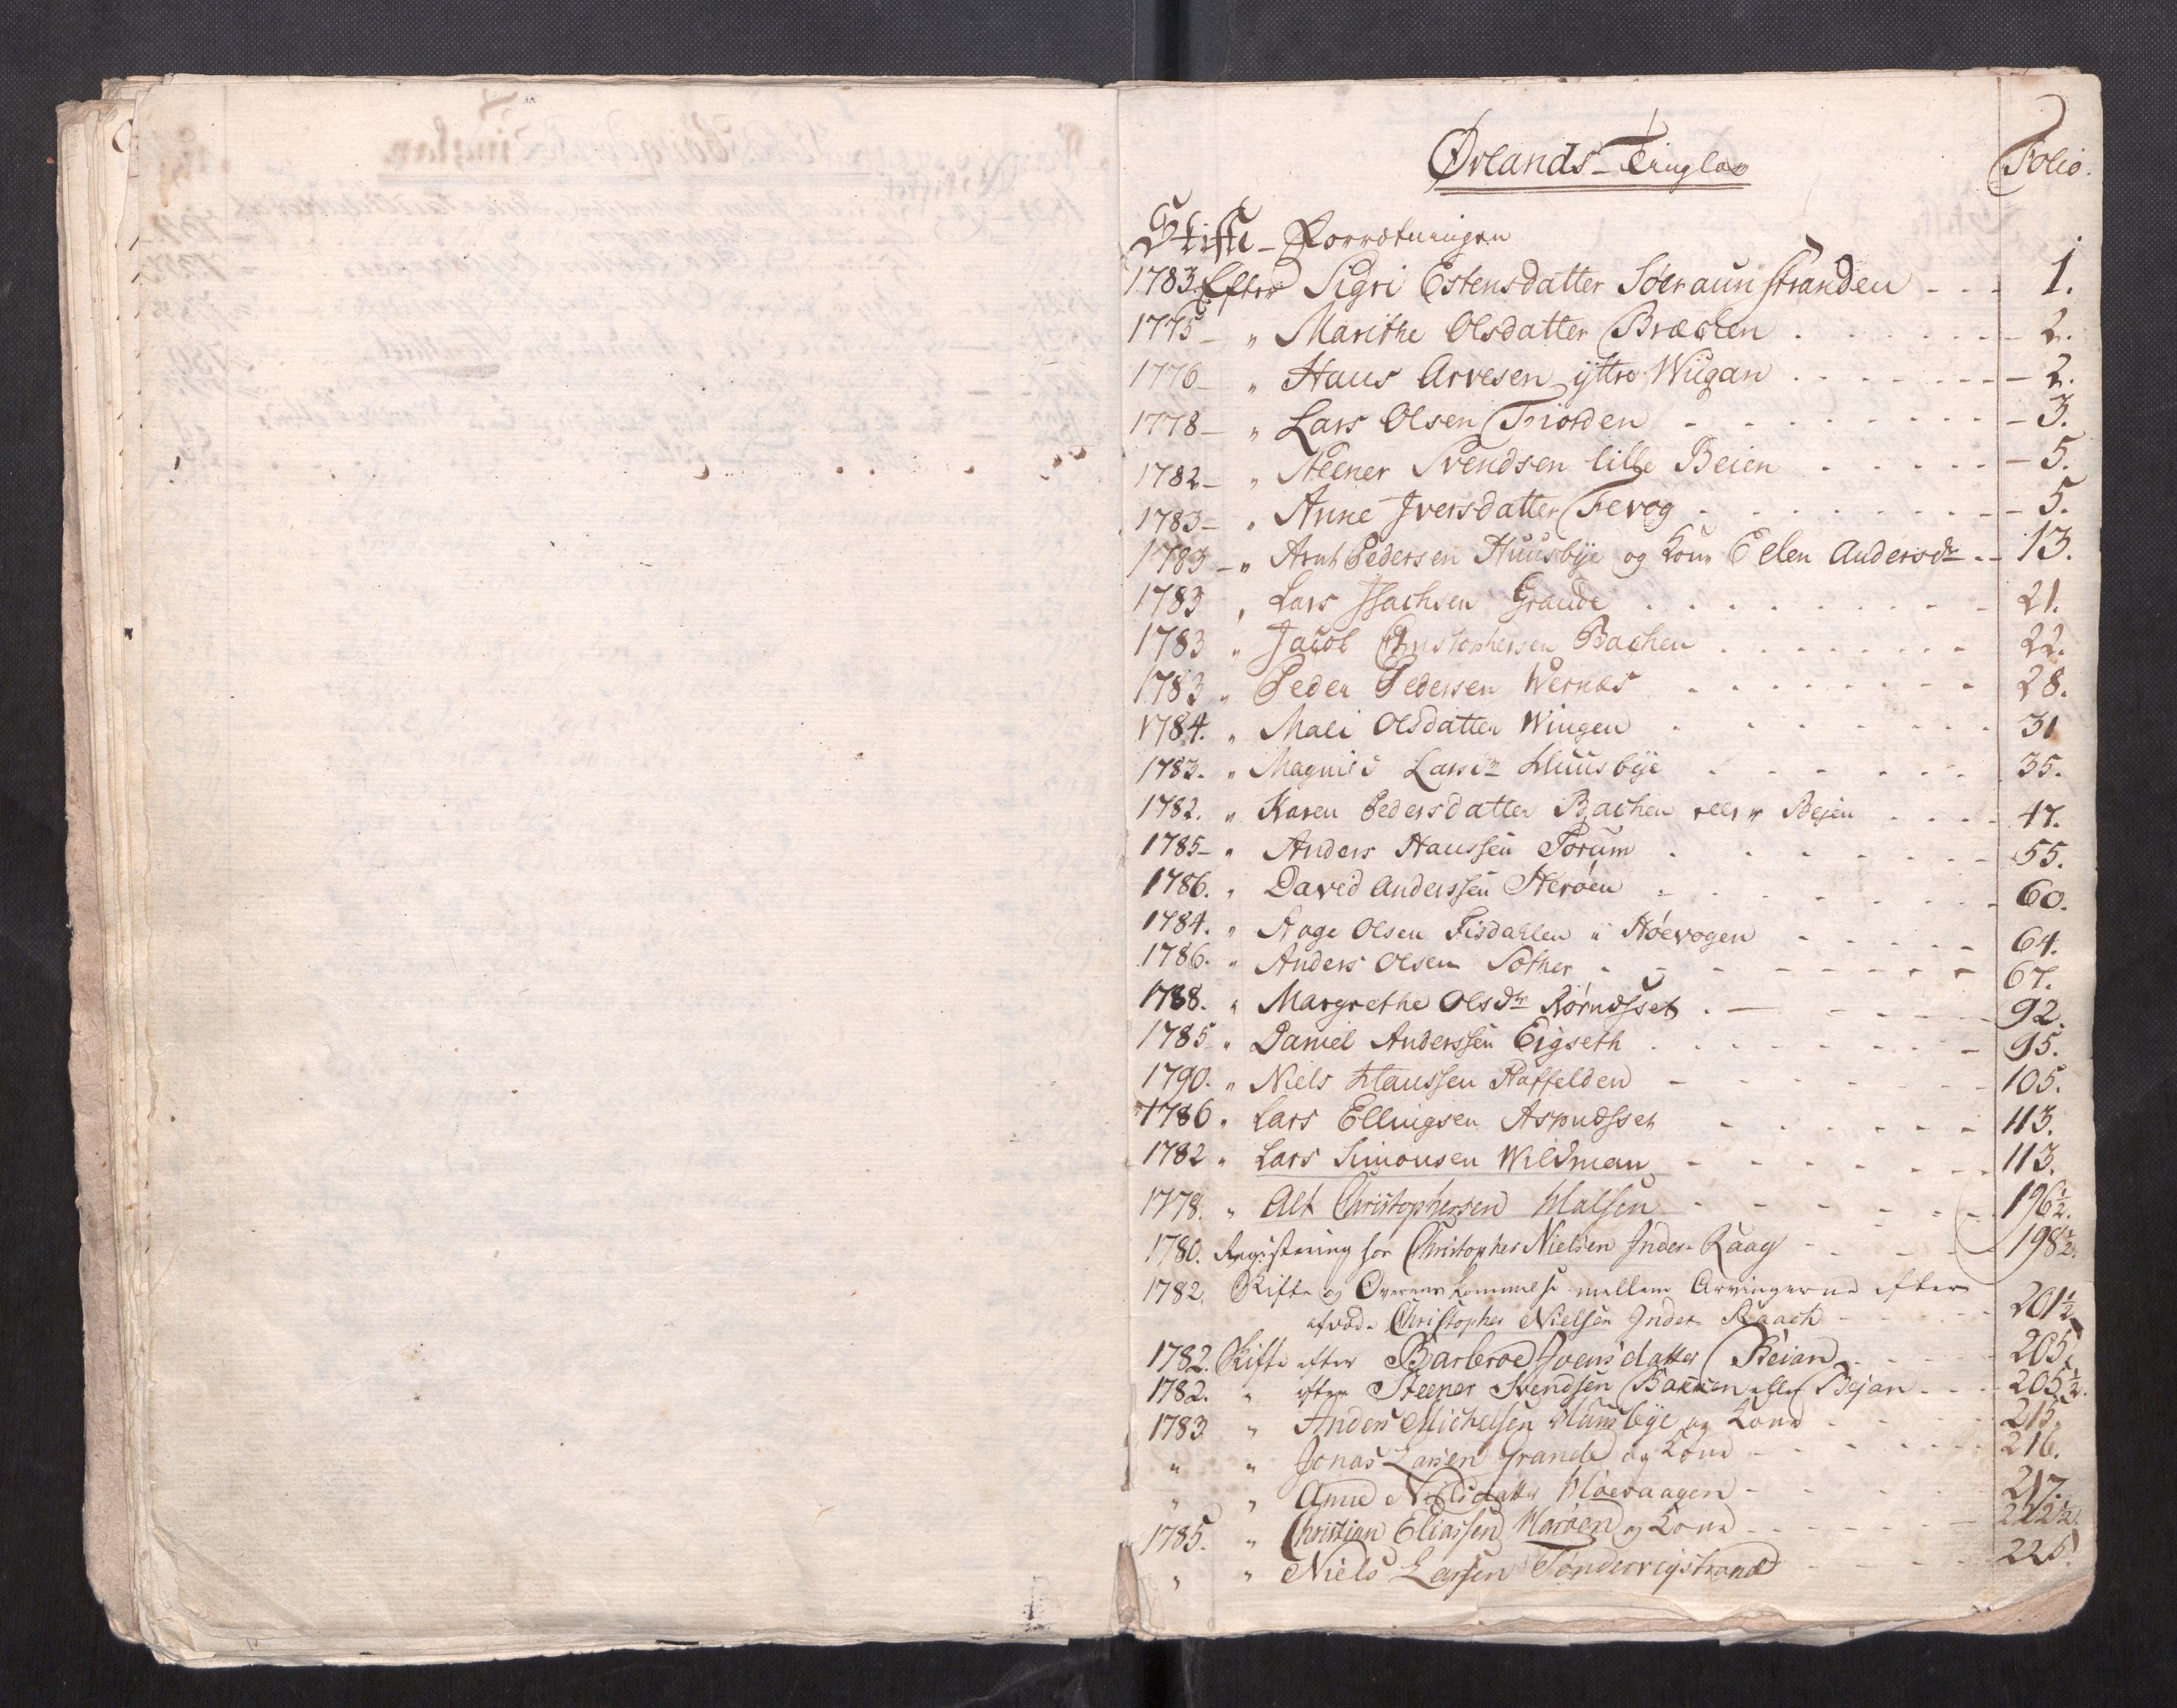 Ørlands Tinglav
Folio.
Skifte-Forretningen
1783. Efter Sigri Estensdatter Søeraunstranden - - - 1.
1775 - " Marithe Olsdatter Brækken - 2.
1776 - " Hans Arvesen yttre Wiigan - 2.
1778 - " Lars Olsen Fiorden - 3.
1782 - " Steener Svendsen lille Beien - 5.
1783 - " Anne Iversdatter Fevog - 5.
1783 - " Arnt Pedersen Huusbye og Kone Eelen Andersdr - 13.
1783 " Lars Isachsen Grande - 21.
1783 " Jacob Christophersen Bachen - 22.
1783 " Peder Pedersen Wernæs - 28.
1784. " Mali Olsdatter Wingen - 31
1783. " Magnild Larsdr Huusbye - 35.
1782. " Karen Pedersdatter Bachen eller Bejen - 47.
1785 - " Anders Hanssen Borum - 55.
1786. " David Anderssen Herøen - 60.
1784. " Aage Olsen Fisdahlen i Høevogen - 64.
1786. " Anders Olsen Sother - 67.
1788. " Margrethe Olsdr Rørndsset - 92.
1785 " Daniel Anderssen Eigseth - 95.
1790. " Niels Hanssen Raffelden - 105.
1786 " Lars Ellingsen Aspudsset - 113.
1782 " Lars Simonsen Wildman - 113.
1778. " Alt Christophersen Halsen - 196½.
1780. Registering hos Christopher Nielsen Inder Raag - 198½.
1782. Skifte og Overenskommelse mellem Arvingerne efter
afdøde Christopher Nielsen Inder Raach - 201½
1782. Skifte efter Barbroe Joensdatter Beian - 205.
1782. " efter Steener Svendsen Bakken eller Bejan - 205½.
1783 " Anders Michelsen Huusbye og Kone - 215.
" " Jonas Larsen Grande og Kone - 216.
" " Anne Nilsdatter Høevaagen - 217.
1785. " Christian Eliassen Harøen og Kone - 222½.
" " Niels Larsen Tøndervigstrand - 225.